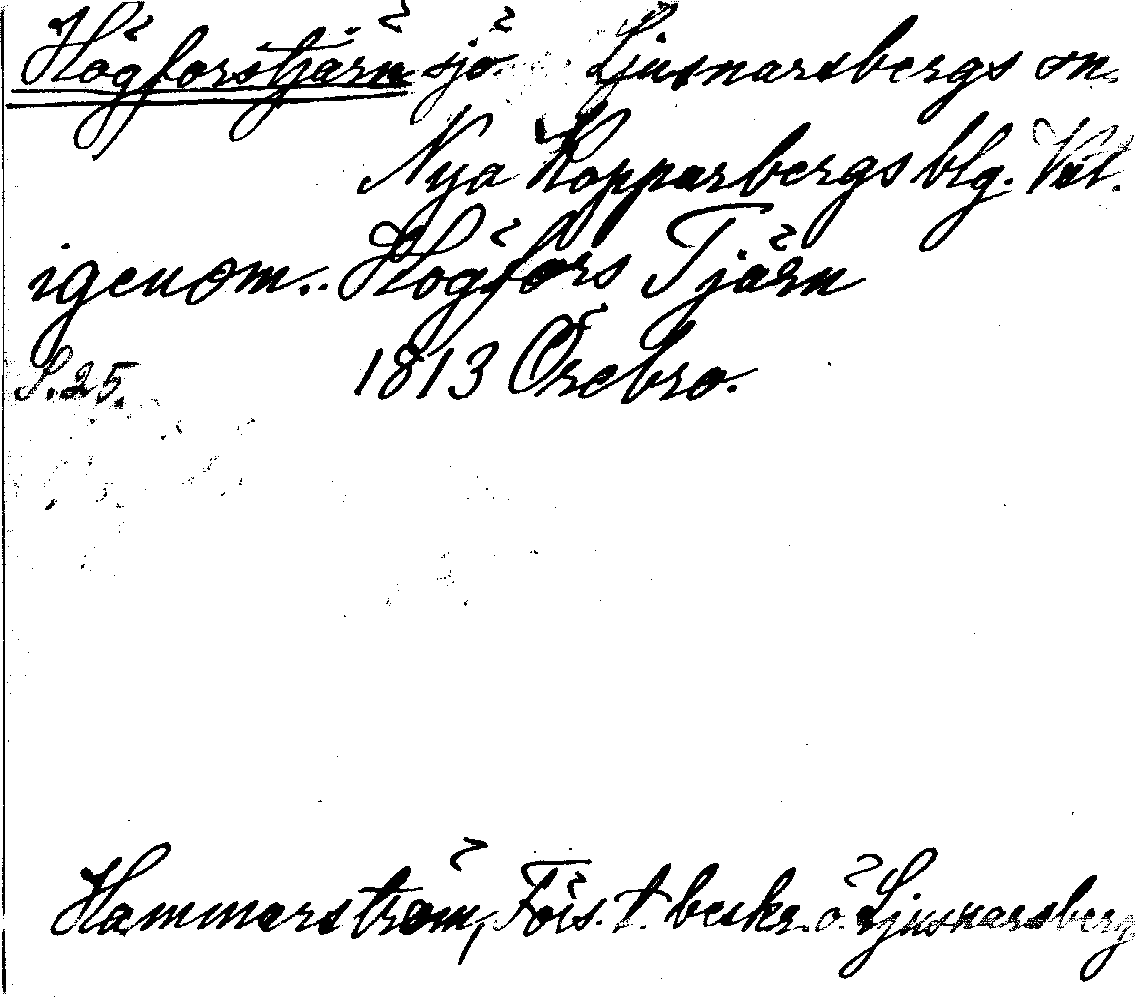 Högforstjärn sjö. Ljusnarsbergs sn.
Nya Kopparbergs blg. Väst.
igenom.. Högfors Tjärn
S. 25. 1813 Örebro.
Hammarström, Förs. t. beskr. ö. Ljusnarsberg